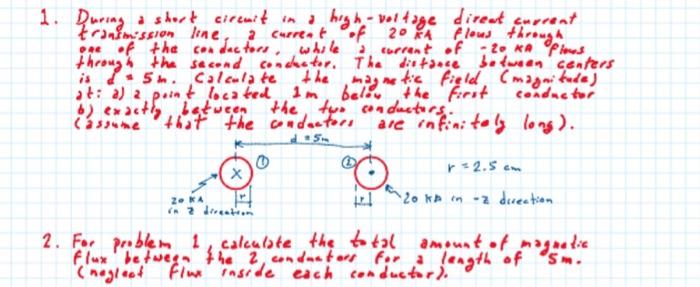 1. During a short circuit in a high-voltage direct current
transmission line, a current of 20 kA flows through
one of the conductors, while a current of -20 kA flows
through the second conductor. The distance between centers
is d = 5m. Calculate the magnetic field (magnitude)
at: a) a point located 1m below the first conductor
b) exactly between the two conductors.
(assume that the conductors are infinitely long).
d = 5m
① ②
r = 2.5 cm
X
r r
20 kA
in z direction
20 kA in -z direction
2. For problem 1, calculate the total amount of magnetic
flux between the 2 conductors for a length of 5m.
(neglect flux inside each conductor).